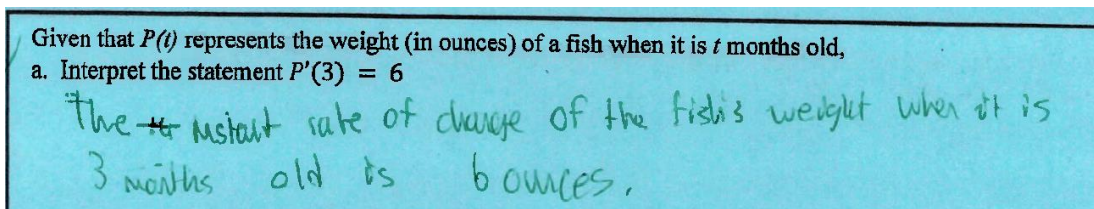 Given that P(t) represents the weight (in ounces) of a fish when it is t months old,
a. Interpret the statement P'(3) = 6
The instant rate of change of the fish's weight when it is
3 months old is 6 ounces.